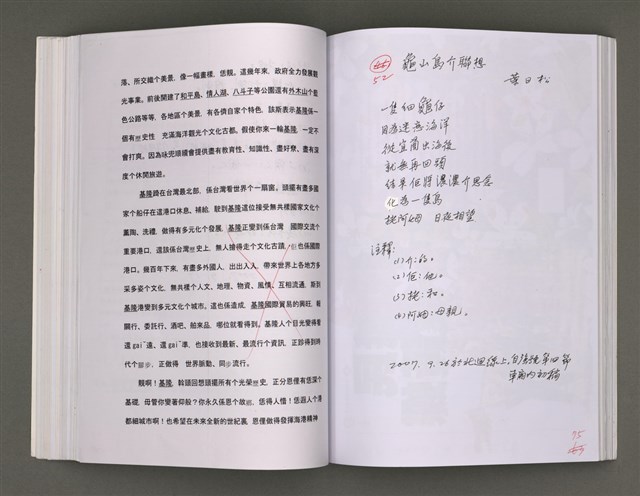 落、所交織个美景,像一幅畫樣,恁靚。這幾年來,政府全力發展觀
光事業。前後開建了和平島、情人湖、八斗子等公園還有外木山个藍
色公路等等,各地區个美景,有各儕自家个特色,該斯表示基隆係
個有史性 充滿海洋觀光个文化古都。假使你來一輪基隆,一定不
會打爽。因為咏兜頭擺會提供盡有教育性、知識性、盡好尞、盡有深
度个休閒旅遊。
基隆蹛在台灣最北部,係台灣看世界个一扇窗。頭擺有盡多國
家个船仔在這港口休息、補給,駛到基隆這位接受無共樣國家文化个
薰陶、洗禮,做得有多元化个發展,基隆正變到係台灣 國際交流个
重要港口,還該係台灣史上,無人搶得走个文化古蹟,也係國際
港口。幾百年下來,有盡多外國人,出出入入 帶來世界上各地方多
采多姿个文化,無共樣个人文、地理、物資、風情、互相流通,斯到
基隆港變到多元文化个城市。這也係造成,基隆國際貿易的興旺,報
關行、委託行、酒吧、舶來品,哪位就看得到。基隆人个目光變得看
還gai遠、還gai準,也接收到最新、最流行个資訊,正診得到時
代个,正做得 世界脈動、同流行。
親啊!基隆,斡頭回想頭擺所有个光榮史,正分恩僅有恁深个
基礎,毋管你變著仰般?你永久係恩个故,恁得人惜!恁迎人个港
都細城市啊!也希望在未來全新的世紀裏,恩僅做得發揮海港精神
52
龜山島介聯想
葉日松
一隻細龜仔
因為迷戀海洋
從宜蘭出海後
就無再回頭
結果佢將濃濃介思念
化為一隻島
挽阿姆 日夜相望
注釋:
(1)介:的。
(2)佢:他。
(3)挽:和。
(4)阿姆:母親。
2007.9.26於北迴線上,自強號第四節
車廂内初稿
75